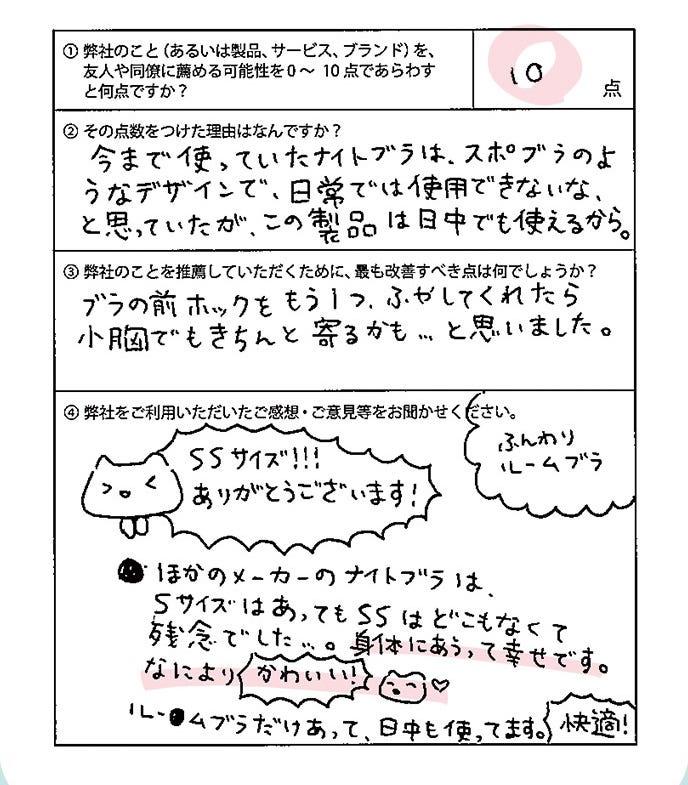 ① 弊社のこと（あるいは製品、サービス、ブランド）を、
友人や同僚に薦める可能性を0～ 10点であらわす
と何点ですか？
10
点
② その点数をつけた理由はなんですか？
今まで使っていたナイトブラは、スポブラのよ
うなデザインで、日常では使用できないな、
と思っていたが、この製品は日中でも使えるから。
③ 弊社のことを推薦していただくために、最も改善すべき点は何でしょうか？
ブラの前ホックをもう1つ、ふやしてくれたら
小胸でもきちんと寄るかも…と思いました。
④ 弊社をご利用いただいたご感想・ご意見等をお聞かせください。
SSサイズ!!!
ありがとうございます!
ふんわり
ルームブラ
ほかのメーカーのナイトブラは、
Sサイズはあっても SSはどこもなくて
残念でした…。身体にあうって幸せです。
なにより かわいい! ♡
ルームブラだけあって、日中も使ってます。 快適!